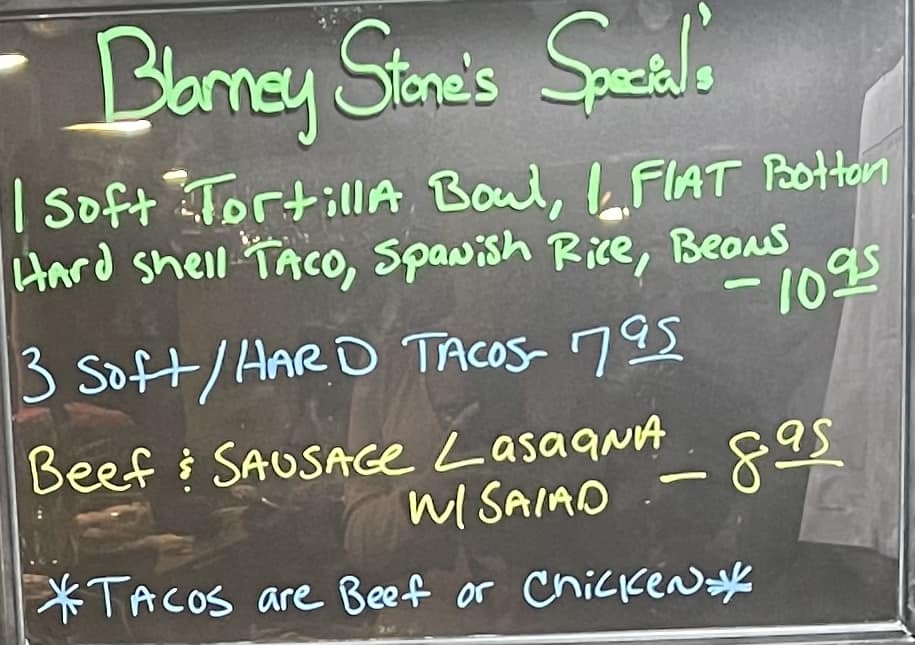 Blarney Stone's Special's
1 Soft TortillA Bowl, 1 FlAT Bottom
HArd shell TAco, SpaNish Rice, BeaNs
- 10 95
3 Soft/HARD TAcos- 7 95
Beef & SAUSAGe LasagNA - 8 95
W/ SAlAD
*TAcos are Beef or ChicKeN*